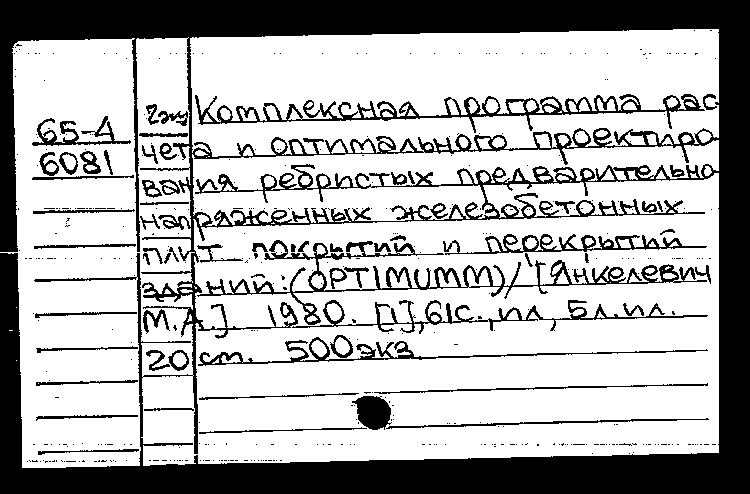 65-4
6081
2экз Комплексная программа рас
чета и оптимального проектиро
вания ребристых предварительно
напряженных железобетонных
плит покрытий и перекрытий
зданий: (OPTIMUMM) / [Янкелевич
М.А.]. 1980. [1], 61с., ил, 5л.ил.
20 ст. 500экз